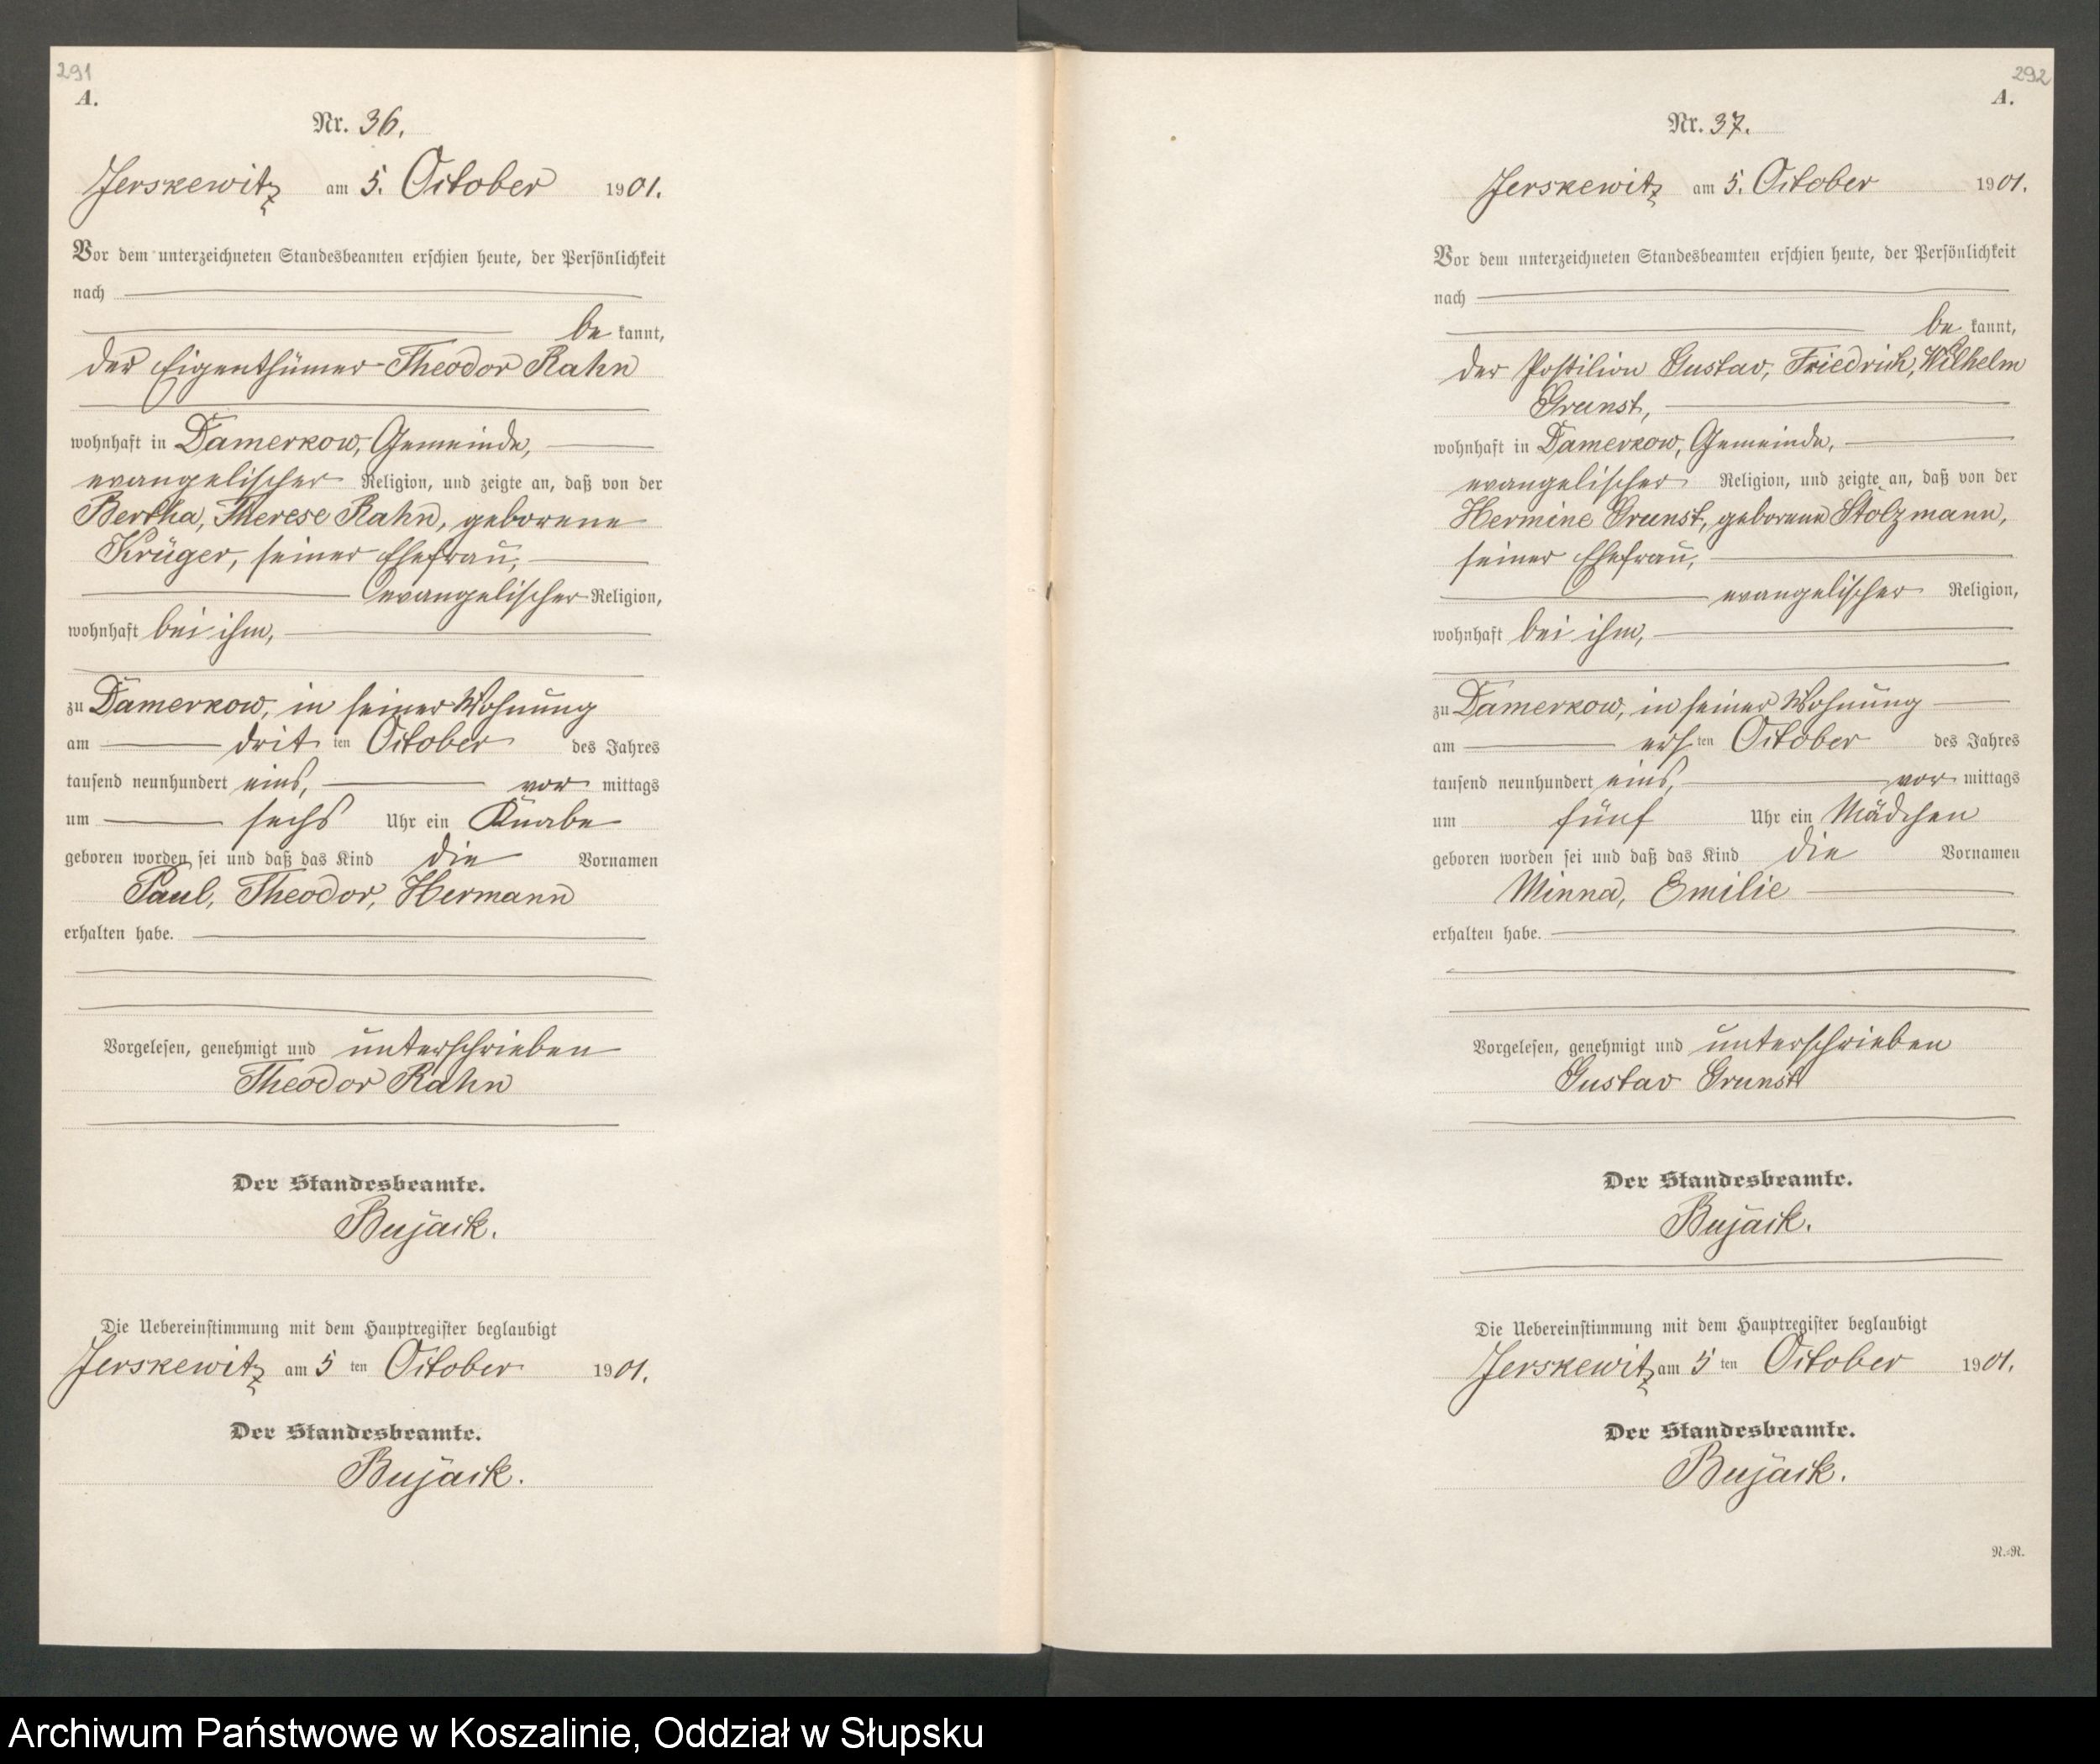 291
A.
Nr. 36.
Jerskewitz am 5. October 1901.
Vor dem unterzeichneten Standesbeamten erschien heute, der Persönlichkeit
nach
be kannt,
der Eigenthümer Theodor Rahn
wohnhaft in Damerkow, Gemeinde,
evangelischer Religion, und zeigte an, daß von der
Bertha, Therese Rahn, geborene
Krüger, seiner Ehefrau,
evangelischer Religion,
wohnhaft bei ihm,
zu Damerkow, in seiner Wohnung
am dritten October des Jahres
tausend neunhundert eins, vor mittags
um sechs Uhr ein Knabe
geboren worden sei und daß das Kind die Vornamen
Paul, Theodor, Hermann
erhalten habe.
Vorgelesen, genehmigt und unterschrieben
Theodor Rahn
Der Standesbeamte.
Bujack.
Die Uebereinstimmung mit dem Hauptregister beglaubigt
Jerskewitz am 5 ten October 1901.
Der Standesbeamte.
Bujack.
292
A.
Nr. 37.
Jerskewitz am 5. October 1901.
Vor dem unterzeichneten Standesbeamten erschien heute, der Persönlichkeit
nach
be kannt,
der Postilion Gustav, Friedrich, Wilhelm
Grunst,
wohnhaft in Damerkow, Gemeinde,
evangelischer Religion, und zeigte an, daß von der
Hermine Grunst, geborene Stolzmann,
seiner Ehefrau,
evangelischer Religion,
wohnhaft bei ihm,
zu Damerkow, in seiner Wohnung
am ersten October des Jahres
tausend neunhundert eins, vor mittags
um fünf Uhr ein Mädchen
geboren worden sei und daß das Kind die Vornamen
Minna, Emilie
erhalten habe.
Vorgelesen, genehmigt und unterschrieben
Gustav Grunst
Der Standesbeamte.
Bujack.
Die Uebereinstimmung mit dem Hauptregister beglaubigt
Jerskewitz am 5 ten October 1901.
Der Standesbeamte.
Bujack.
N.-N.
Archiwum Państwowe w Koszalinie, Oddział w Słupsku